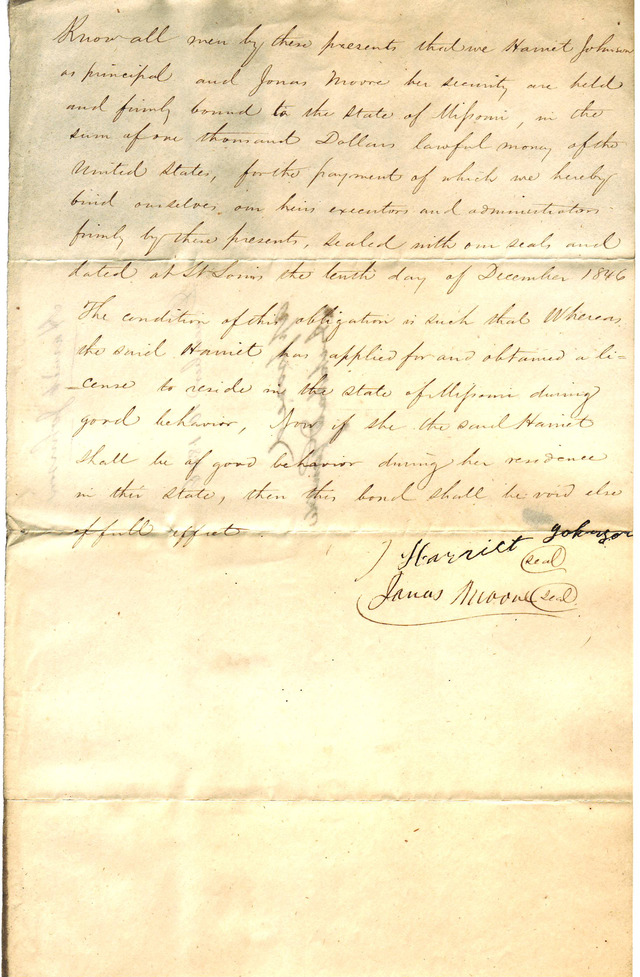 Know all men by these presents that we Harriet Johnson
as principal and Jonas Moore her security are held
and firmly bound to the state of Missouri, in the
sum of one thousand Dollars lawful money of the
United States, for the payment of which we hereby
bind ourselves, our heirs executors and administrators
firmly by these presents, sealed with our seals and
dated at St Louis the tenth day of December 1846
The condition of this obligation is such that Whereas
the said Harriet has applied for and obtained a li-
-cense to reside in the state of Missouri during
good behavior, Now if she the said Harriet
shall be of good behavior during her residence
in this state, then this bond shall be void else
of full effect.
Harriet Johnson
seal
Jonas Moore seal